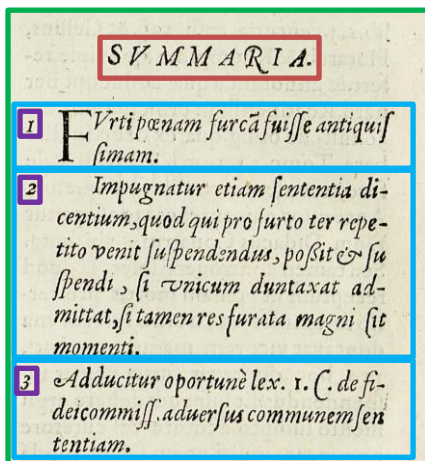 SVMMARIA.
1 FVrti pœnam furcã fuiſſe antiquiſ
ſimam.
2 Impugnatur etiam ſententia di-
centium, quod qui pro furto ter repe-
tito venit ſuſpendendus, poſsit & ſu
ſpendi, ſi vnicum duntaxat ad-
mittat, ſi tamen res furata magni ſit
momenti.
3 Adducitur oportunè lex. 1. C. de fi-
deicommiſſ. aduerſus communem ſen
tentiam.